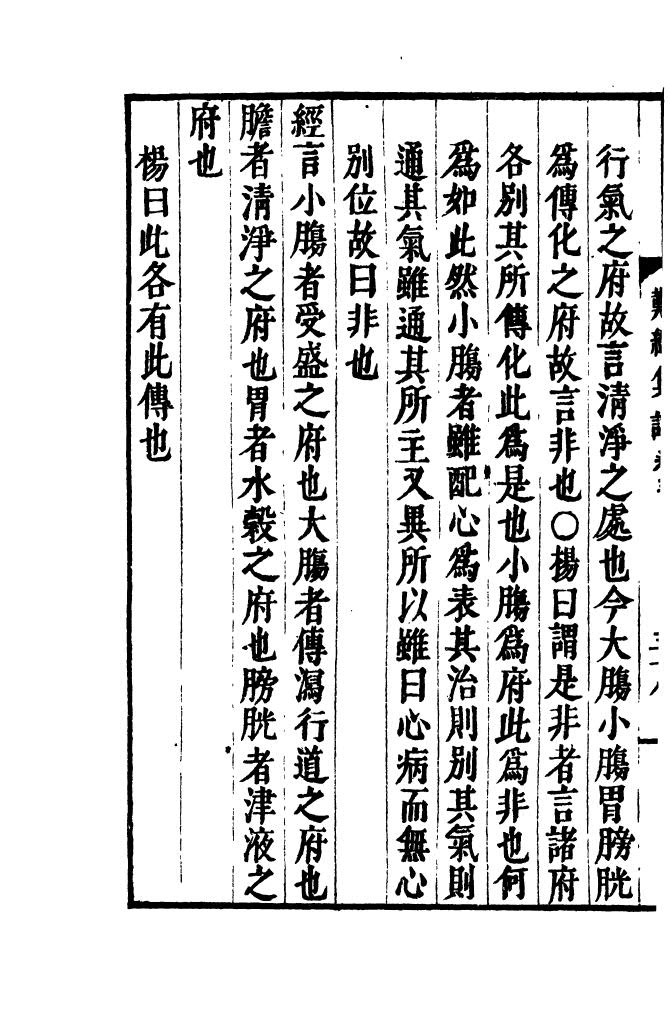 行氣之府故言清淨之處也今大膓小膓胃膀胱
為傳化之府故言非也○楊曰謂是非者言諸府
各別其所傳化此為是也小膓為府此為非也何
為如此然小膓者雖配心為表其治則別其氣則
通其氣雖通其所主又異所以雖曰心病而無心
別位故曰非也
經言小膓者受盛之府也大膓者傳瀉行道之府也
膽者清淨之府也胃者水穀之府也膀胱者津液之
府也
楊曰此各有此傳也